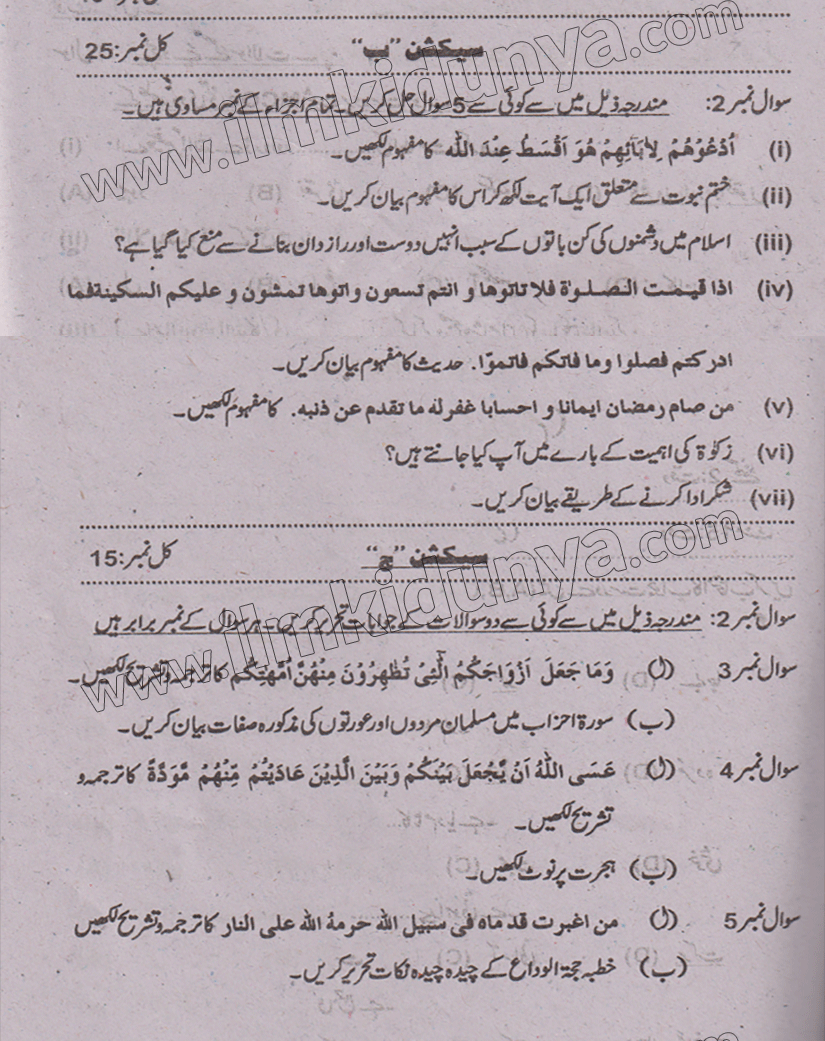 سیکشن "ب" کل نمبر: 25
سوال نمبر 2: مندرجہ ذیل میں سے کوئی سے 5 سوال حل کریں۔ تمام اجزاء کے نمبر مساوی ہیں۔
(i) اُدْعُوْهُمْ لِاٰبَآئِهِمْ هُوَ اَقْسَطُ عِنْدَ اللّٰه کا مفہوم لکھیں۔
(ii) ختم نبوت سے متعلق ایک آیت لکھ کر اس کا مفہوم بیان کریں۔
(iii) اسلام میں دشمنوں کی کن باتوں کے سبب انہیں دوست اور رازدان بنانے سے منع کیا گیا ہے؟
(iv) اذا قیمت الصلوٰة فلا تاتوها و انتم تسعون واتوها تمشون و علیکم السکینة فما
ادرکتم فصلوا وما فاتکم فاتموّا. حدیث کا مفہوم بیان کریں۔
(v) من صام رمضان ایمانا و احسابا غفرله ما تقدم عن ذنبه. کا مفہوم لکھیں۔
(vi) زکوٰۃ کی اہمیت کے بارے میں آپ کیا جانتے ہیں؟
(vii) شکر ادا کرنے کے طریقے بیان کریں۔
سیکشن "ج" کل نمبر: 15
سوال نمبر 2: مندرجہ ذیل میں سے کوئی سے دو سوالات کے جوابات تحریر کریں۔ ہر سوال کے نمبر برابر ہیں
سوال نمبر 3 (ا) وَمَا جَعَلَ اَزْوَاجَکُمُ الّٰٓئِیْ تُظٰهِرُوْنَ مِنْهُنَّ اُمَّهٰتِکُم کا ترجمہ و تشریح لکھیں۔
(ب) سورۃ احزاب میں مسلمان مردوں اور عورتوں کی مذکورہ صفات بیان کریں۔
سوال نمبر 4 (ا) عَسَی اللّٰهُ اَنْ یَّجْعَلَ بَیْنَکُمْ وَبَیْنَ الَّذِیْنَ عَادَیْتُمْ مِّنْهُمْ مَّوَدَّةً کا ترجمہ و
تشریح لکھیں۔
(ب) ہجرت پر نوٹ لکھیں۔
سوال نمبر 5 (ا) من اغبرت قد ماه فی سبیل الله حرمهُ الله علی النار کا ترجمہ و تشریح لکھیں
(ب) خطبہ حجۃ الوداع کے چیدہ چیدہ نکات تحریر کریں۔
www.ilmkidunya.com
www.ilmkidunya.com